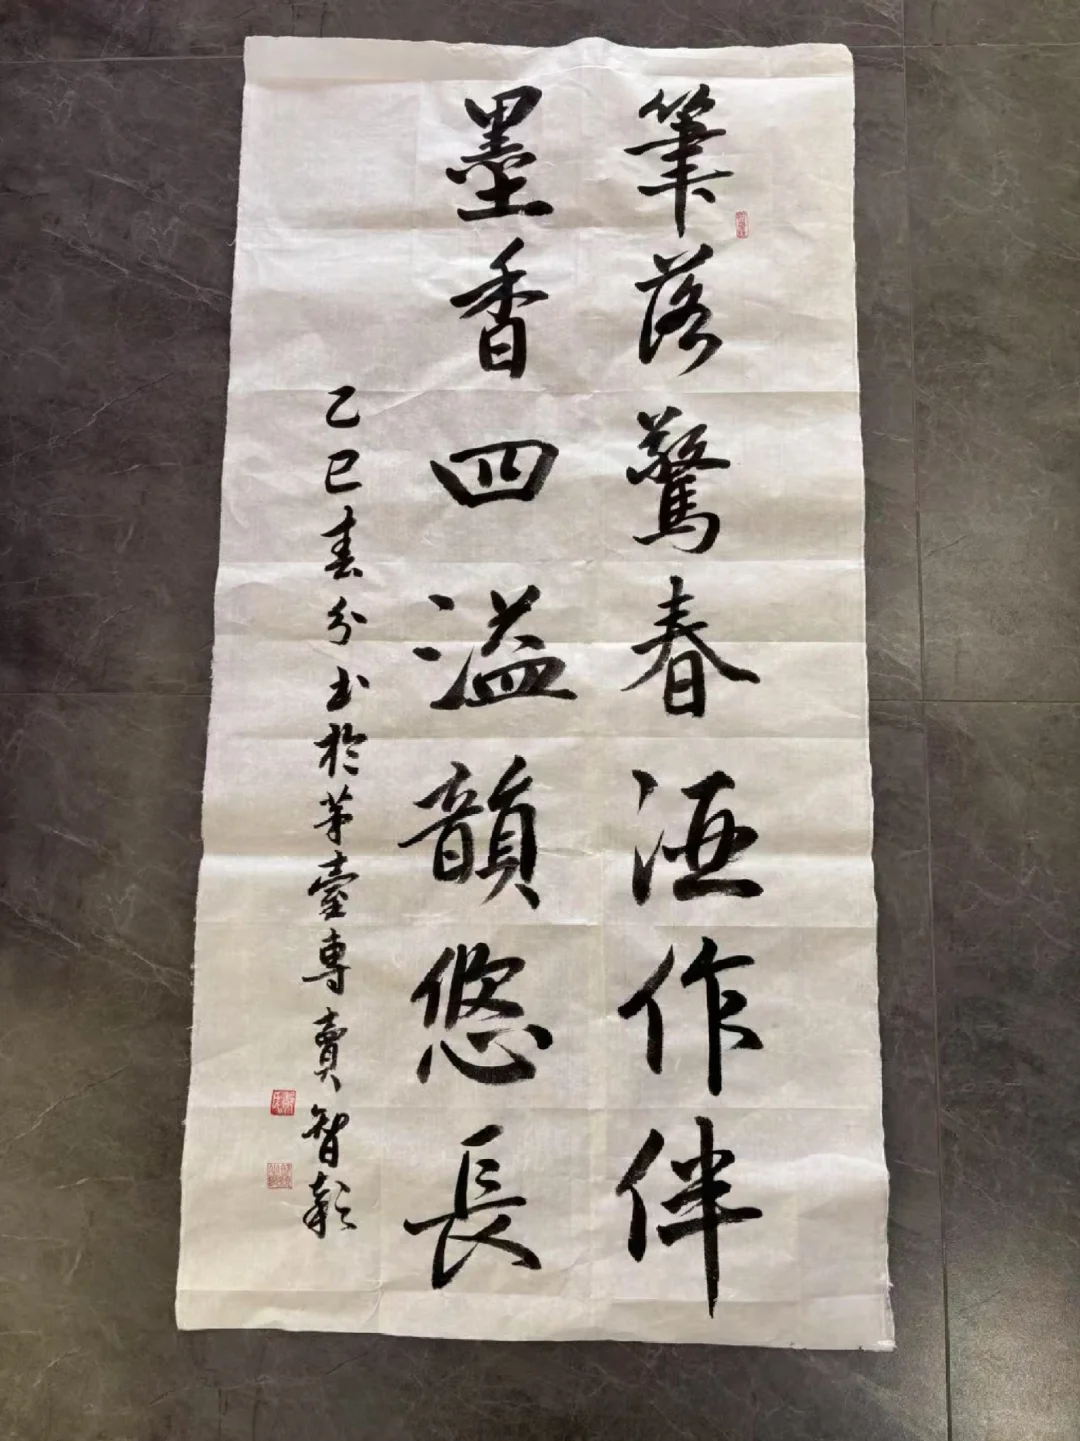 筆落驚春酒作伴
墨香四溢韻悠長
乙巳春分书於茅臺專賣智彰